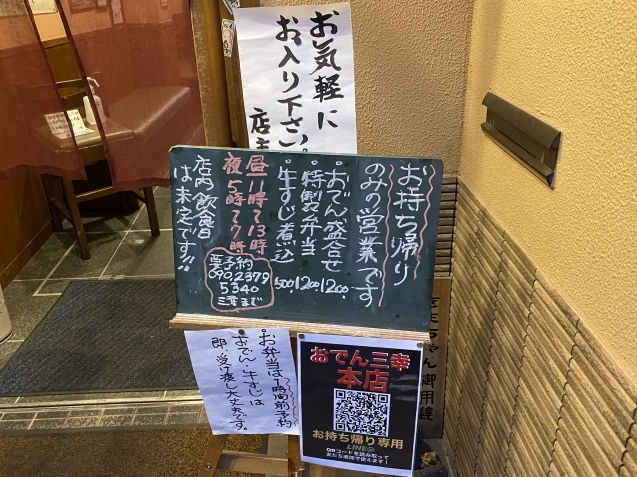 お気軽に
お入り下さい。
店主
お持ち帰り
のみの営業です
・おでん盛合せ 1200,
・特製弁当 1200
・牛すじ煮込 500,
昼 11時〜13時
夜 5時〜7時
要予約
090.2379
5340
三幸まで
店内飲食日
は未定です!!
・お弁当は1時間前予約
おでん・牛すじは
即・受け渡し大丈夫です。
おでん三幸
本店
お持ち帰り専用
LINE@
QRコードを読み取って
友だち追加で使えます!
ちゃん御用達